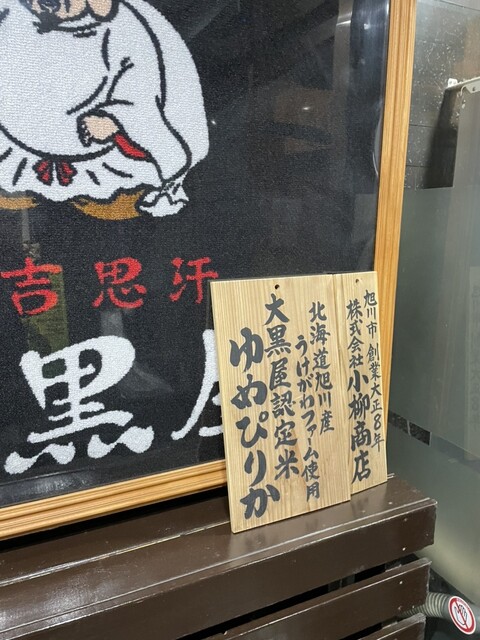 吉思汗
黒屋
旭川市 創業大正8年
株式会社 小柳商店
北海道旭川産
うけがわファーム使用
大黒屋認定米
ゆめぴりか